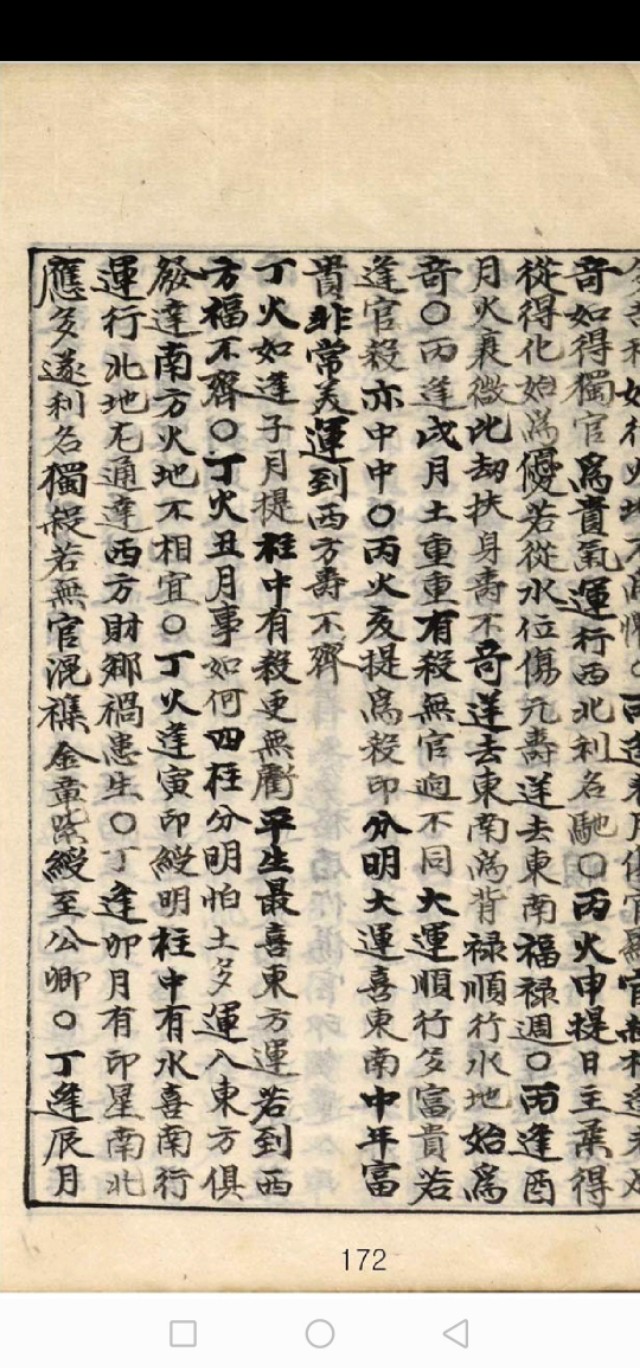 如行火地不
奇如得獨官為貴氣運行西北利名馳○丙火申提日主柔得
從得化始為優若從水位傷元壽逆去東南福祿週○丙逢酉
月火衰微比劫扶身壽不奇逆去東南為背祿順行水地始為
奇○丙逢戌月土重重有殺無官逈不同大運順行多富貴若
逢官殺亦中中○丙火亥提為殺印分明大運喜東南中年富
貴非常美運到西方壽不齊
丁火如逢子月提柱中有殺更無虧平生最喜東方運若到西
方福不齊○丁火丑月事如何四柱分明怕土多運入東方俱
發達南方火地不相宜○丁火逢寅印綬明柱中有水喜南行
運行北地尤通達西方財鄉禍患生○丁逢卯月有印星南北
應多遂利名獨殺若無官混雜金章紫綬至公卿○丁逢辰月
172